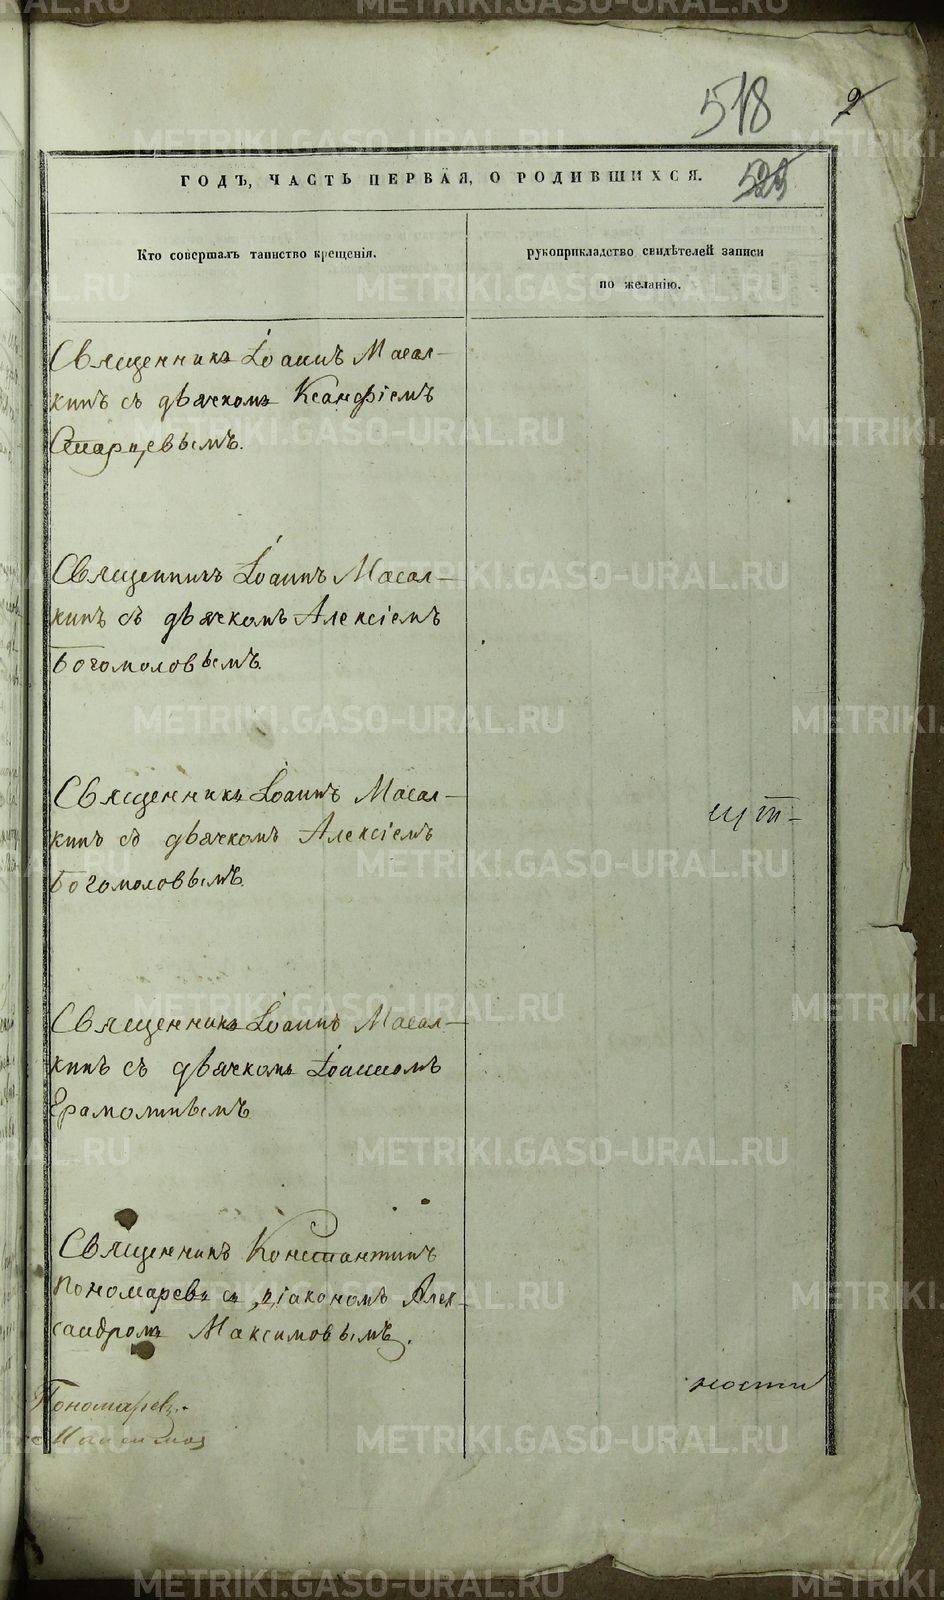 518
2
ГОДЪ, ЧАСТЬ ПЕРВАЯ, О РОДИВШИХСЯ.
Кто совершалъ таинство крещенія.
рукоприкладство свидѣтелей записи
по желанію.
Священникъ Іоаннъ Масал-
кинъ съ дьячкомъ Ксанфіемъ
Старцевымъ.
Священникъ Іоаннъ Масал-
кинъ съ дьячкомъ Алексіемъ
Богомоловымъ.
Священникъ Іоаннъ Масал-
кинъ съ дьячкомъ Алексіемъ
Богомоловымъ.
Священникъ Іоаннъ Масал-
кинъ съ дьячкомъ Іоанномъ
Ермолинымъ
Священникъ Константинъ
Пономаревъ съ діакономъ Алек-
сандромъ Максимовымъ.
Пономаревъ
METRIKI.GASO-URAL.RU